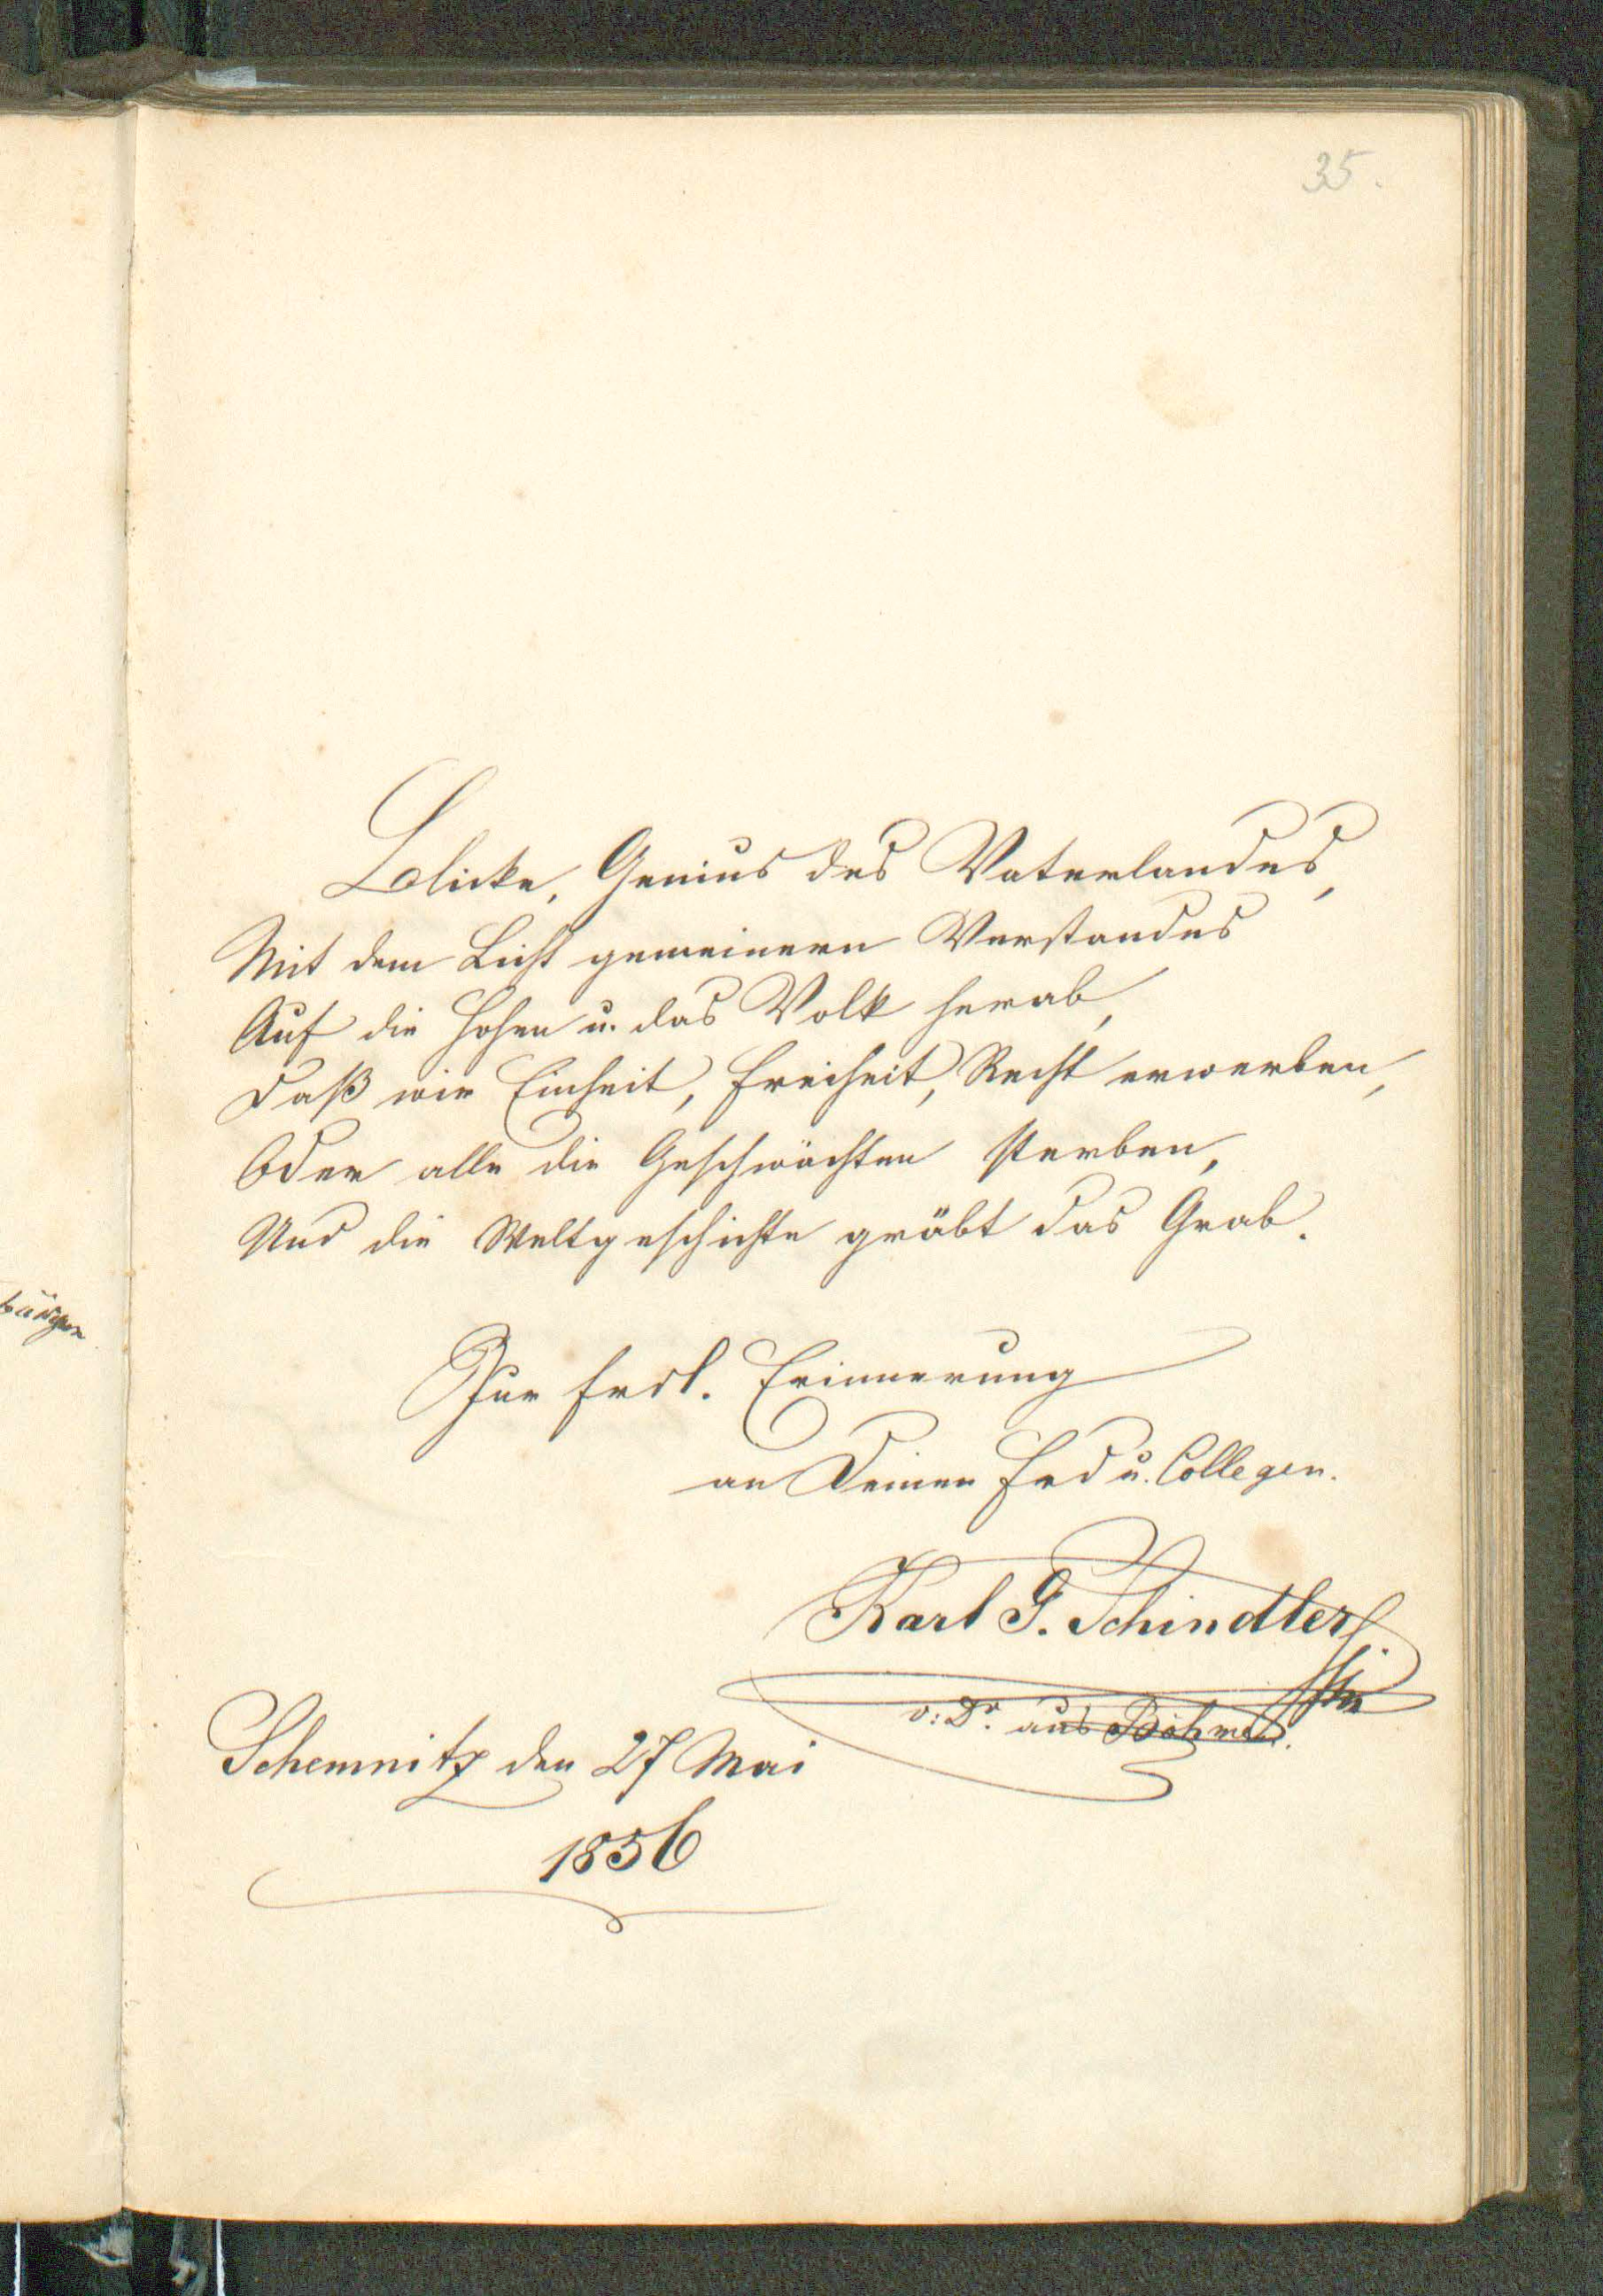 35.
Blicke, Genius des Vaterlandes,
Mit dem Licht gemeinern Verstandes
Auf die Hohen u. das Volk herab,
Daß wir Einheit, Freiheit, Recht erwerben,
Oder alle die Geschwächten sterben,
Und die Weltgeschichte gräbt das Grab.
Zur frdl. Erinnerung
an Deinen Frd u. Collegen.
Karl G. Schindler
v: Dr. aus Böhmen.
Schemnitz den 27 Mai
1856